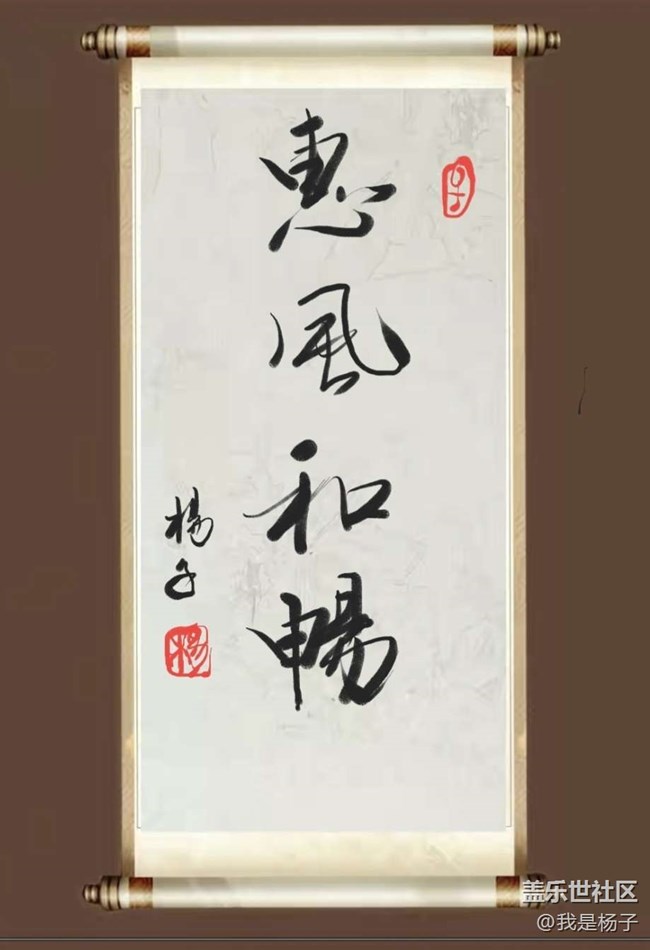 惠風和暢
楊子
楊
子
盖乐世社区
@我是杨子